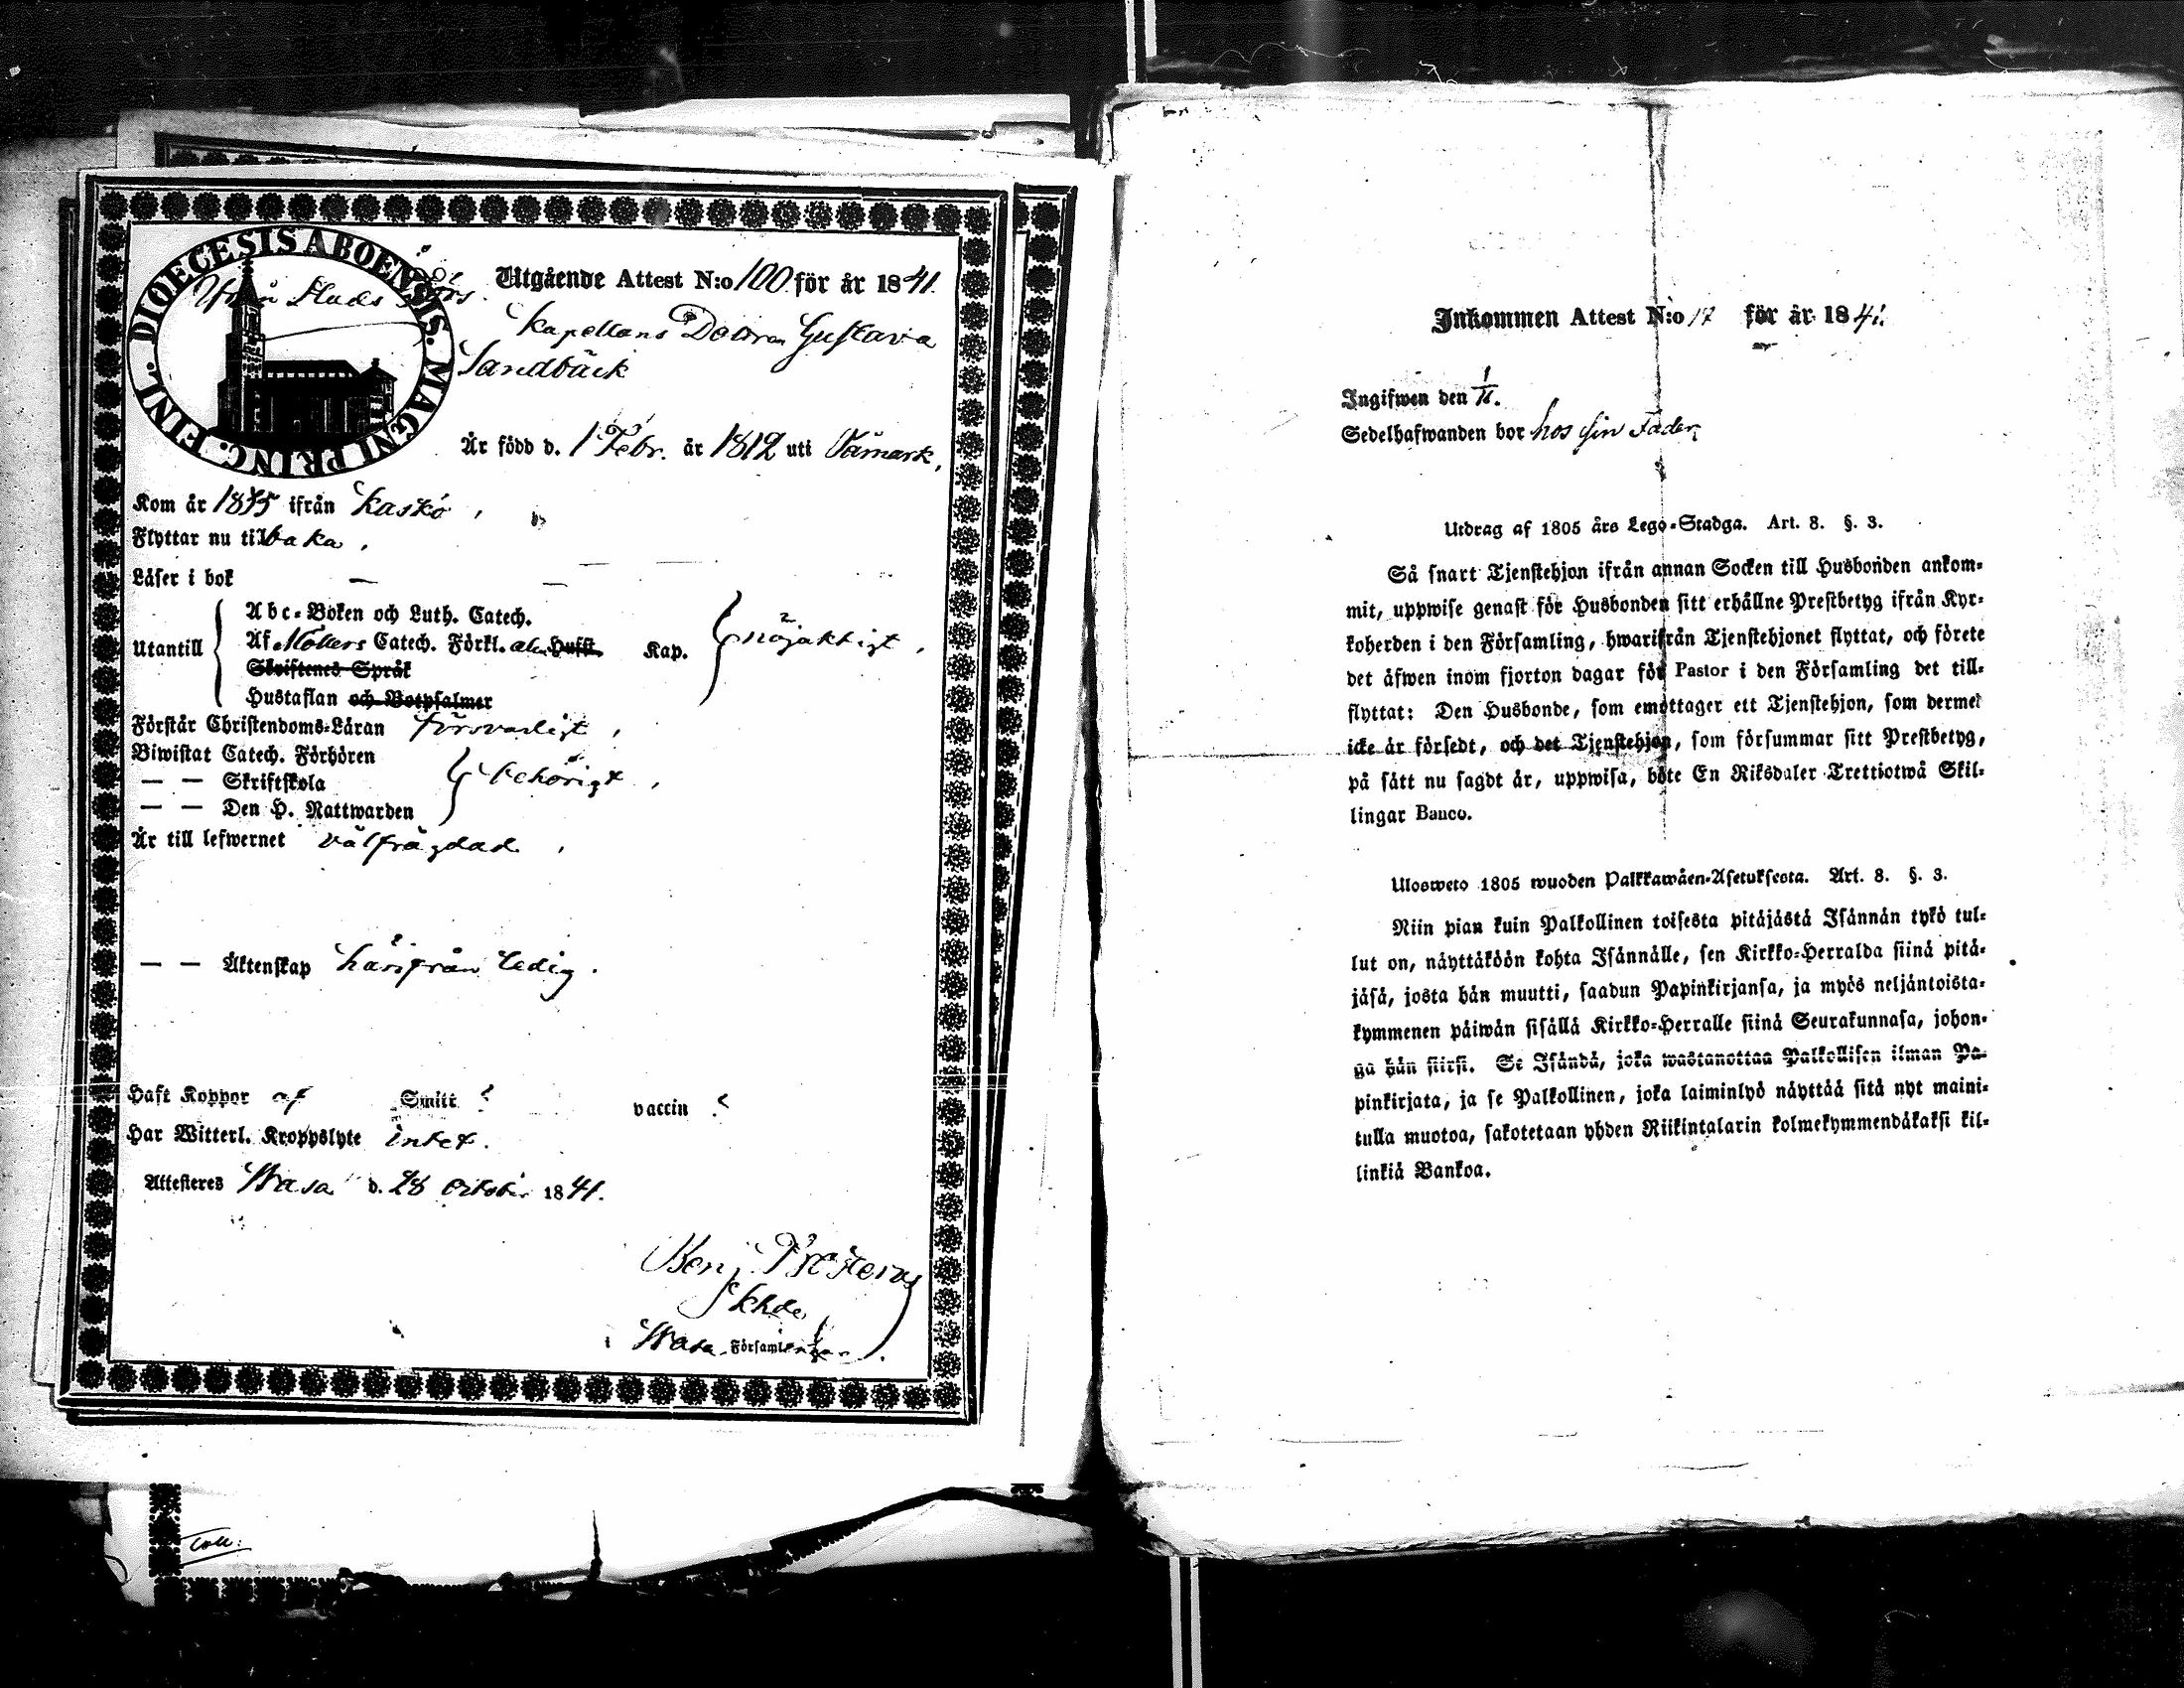 DIOECESIS ABOENSIS. MAGNI PRINC. FINL.
Utgående Attest N:o 100 för år 1841.
Kapellans Dottren Gustava
Sandbäck
Är född d. 1 Febr. år 1812 uti Sämark,
Kom år 1835 ifrån Kaskö,
Flyttar nu tillbaka,
Läser i bok —
Abc-Boken och Luth. Catech.
Utantill
Af Möllers Catech. Förkl. Hufst. Kap. nöjaktigt,
Skriftenes Språk
Hustaflan och Botpsalmer
Förstår Christendoms-Läran försvarligt,
Biwistat Catech. Förhören
— — Skriftskola behörigt,
— — Den H. Nattwarden
Är till lefwernet välfrägdad,
— — Äktenskap härifrån ledig.
Haft Koppor af Smitt ? vaccin ?
Har Witterl. Kroppslyte intet.
Attesteres Wasa d. 28 October 1841.
Benj.
Khde
i Wasa Församlingar.
Coll:
Inkommen Attest N:o 17 för år 1841.
Ingifwen den 1/11.
Sedelhafwanden bor hos sin Fader,
Utdrag af 1805 års Lego-Stadga. Art. 8. §. 3.
Så snart Tjenstehjon ifrån annan Socken till Husbonden ankom-
mit, uppwise genast för Husbonden sitt erhållne Prestbetyg ifrån Kyr-
koherden i den Församling, hwarifrån Tjenstehjonet flyttat, och förete
det äfwen inom fjorton dagar för Pastor i den Församling det till-
flyttat: Den Husbonde, som emottager ett Tjenstehjon, som dermed
icke är försedt, och det Tjenstehjon, som försummar sitt Prestbetyg,
på sätt nu sagdt är, uppwisa, böte En Riksdaler Trettiotwå Skil-
lingar Banco.
Ulosweto 1805 wuoden Palkkawäen-Asetuksesta. Art. 8. §. 3.
Niin pian kuin Palkollinen toisesta pitäjästä Isännän tykö tul-
lut on, näyttäköön kohta Isännälle, sen Kirkko-Herralda siinä pitä-
jäsä, josta hän muutti, saadun Papinkirjansa, ja myös neljäntoista-
kymmenen päiwän sisällä Kirkko-Herralle siinä Seurakunnasa, johon-
ga hän siirsi. Se Isändä, joka wastanottaa Palkollisen ilman Pa-
pinkirjata, ja se Palkollinen, joka laiminlyö näyttää sitä nyt maini-
tulla muotoa, sakotetaan yhden Riikintalarin kolmekymmendäkaksi kil-
linkiä Bankoa.